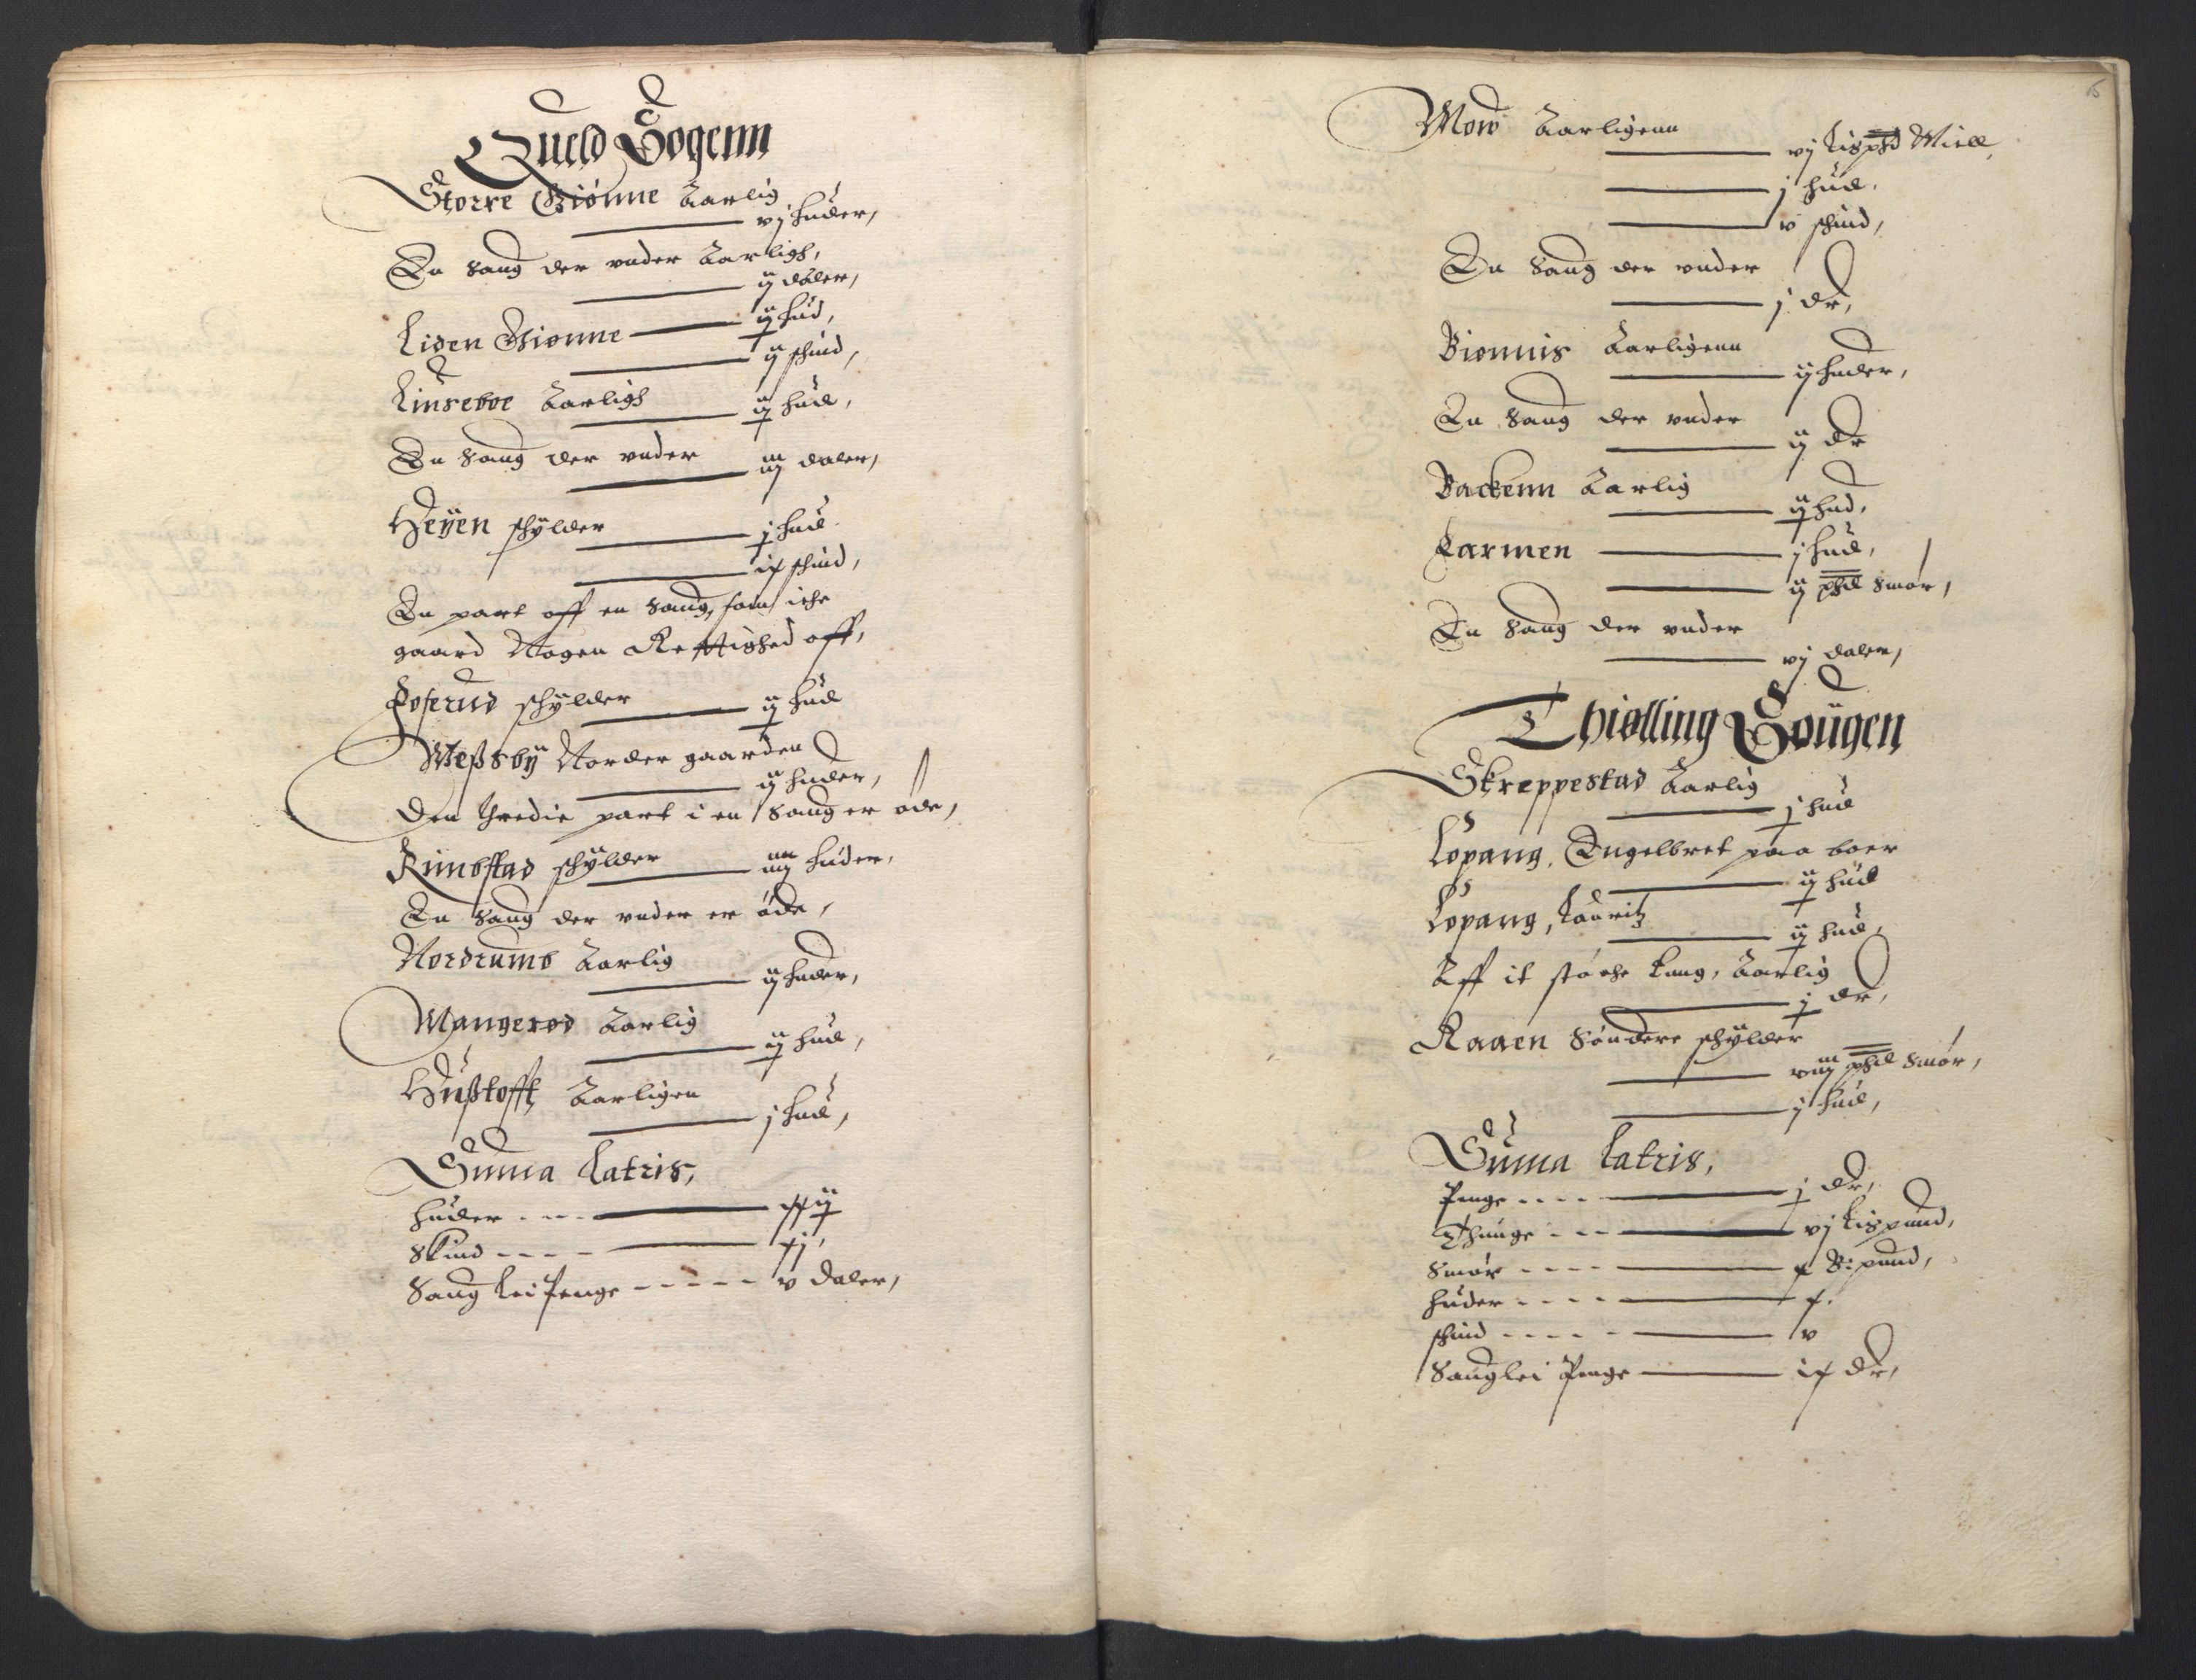 Queld Sogenn
Storre Giønne Aarlig
vj huder,
En Saug der vnder Aarligh,
ij daler,
Liden Gionne ij hud,
ij schind,
Linseboe Aarligh
ij hud,
En Saug der vnder iij daler,
Heÿen schÿlder j hud
ix schind,
En part off en Saug, som iche
gaard Nogen Rettighed off,
Foserud schÿlder ij hud
Weßbÿ Norder gaarden
ij huder,
Den thredie part i en Saug er øde,
Rimbstad schÿlder iiij huder,
En Saug der vnder er øde,
Nordrumb Aarlig
ij huder,
Mangerød Aarlig
ij hud,
Hußtofft Aarligen
j hud,
Suma Latris,
huder - - - xxij
Skind - - - - xj,
Saug Lei Penge - - - - - v daler,
6
Mow Aarligenn
vj Lispd Miell
j hud,
v schind,
En Saug der vnder
j dr,
Bionnis Aarligenn
ij huder,
En Saug der vnder
ij dr
Backenn Aarlig
ij hud,
Farmen j hud,
ij pd Smør,
En Saug der vnder
vj daler,
Thiølling Sougen
Skreppestad Aarlig
j hud
Lopang, Engelbret paa boer
ij hud
Lopang, Lauritz
ij hud,
Aff it støche Eng, Aarlig
j dr,
Raaen Søndere schÿlder
viij pd Smør,
j hud,
Suma Latris,
Penge - - - - j dr,
Thunge - - - vj Lispund,
Smør - - - - x B: pund,
huder - - - - x.
schind - - - - - v
Sauglei Penge ix dr,